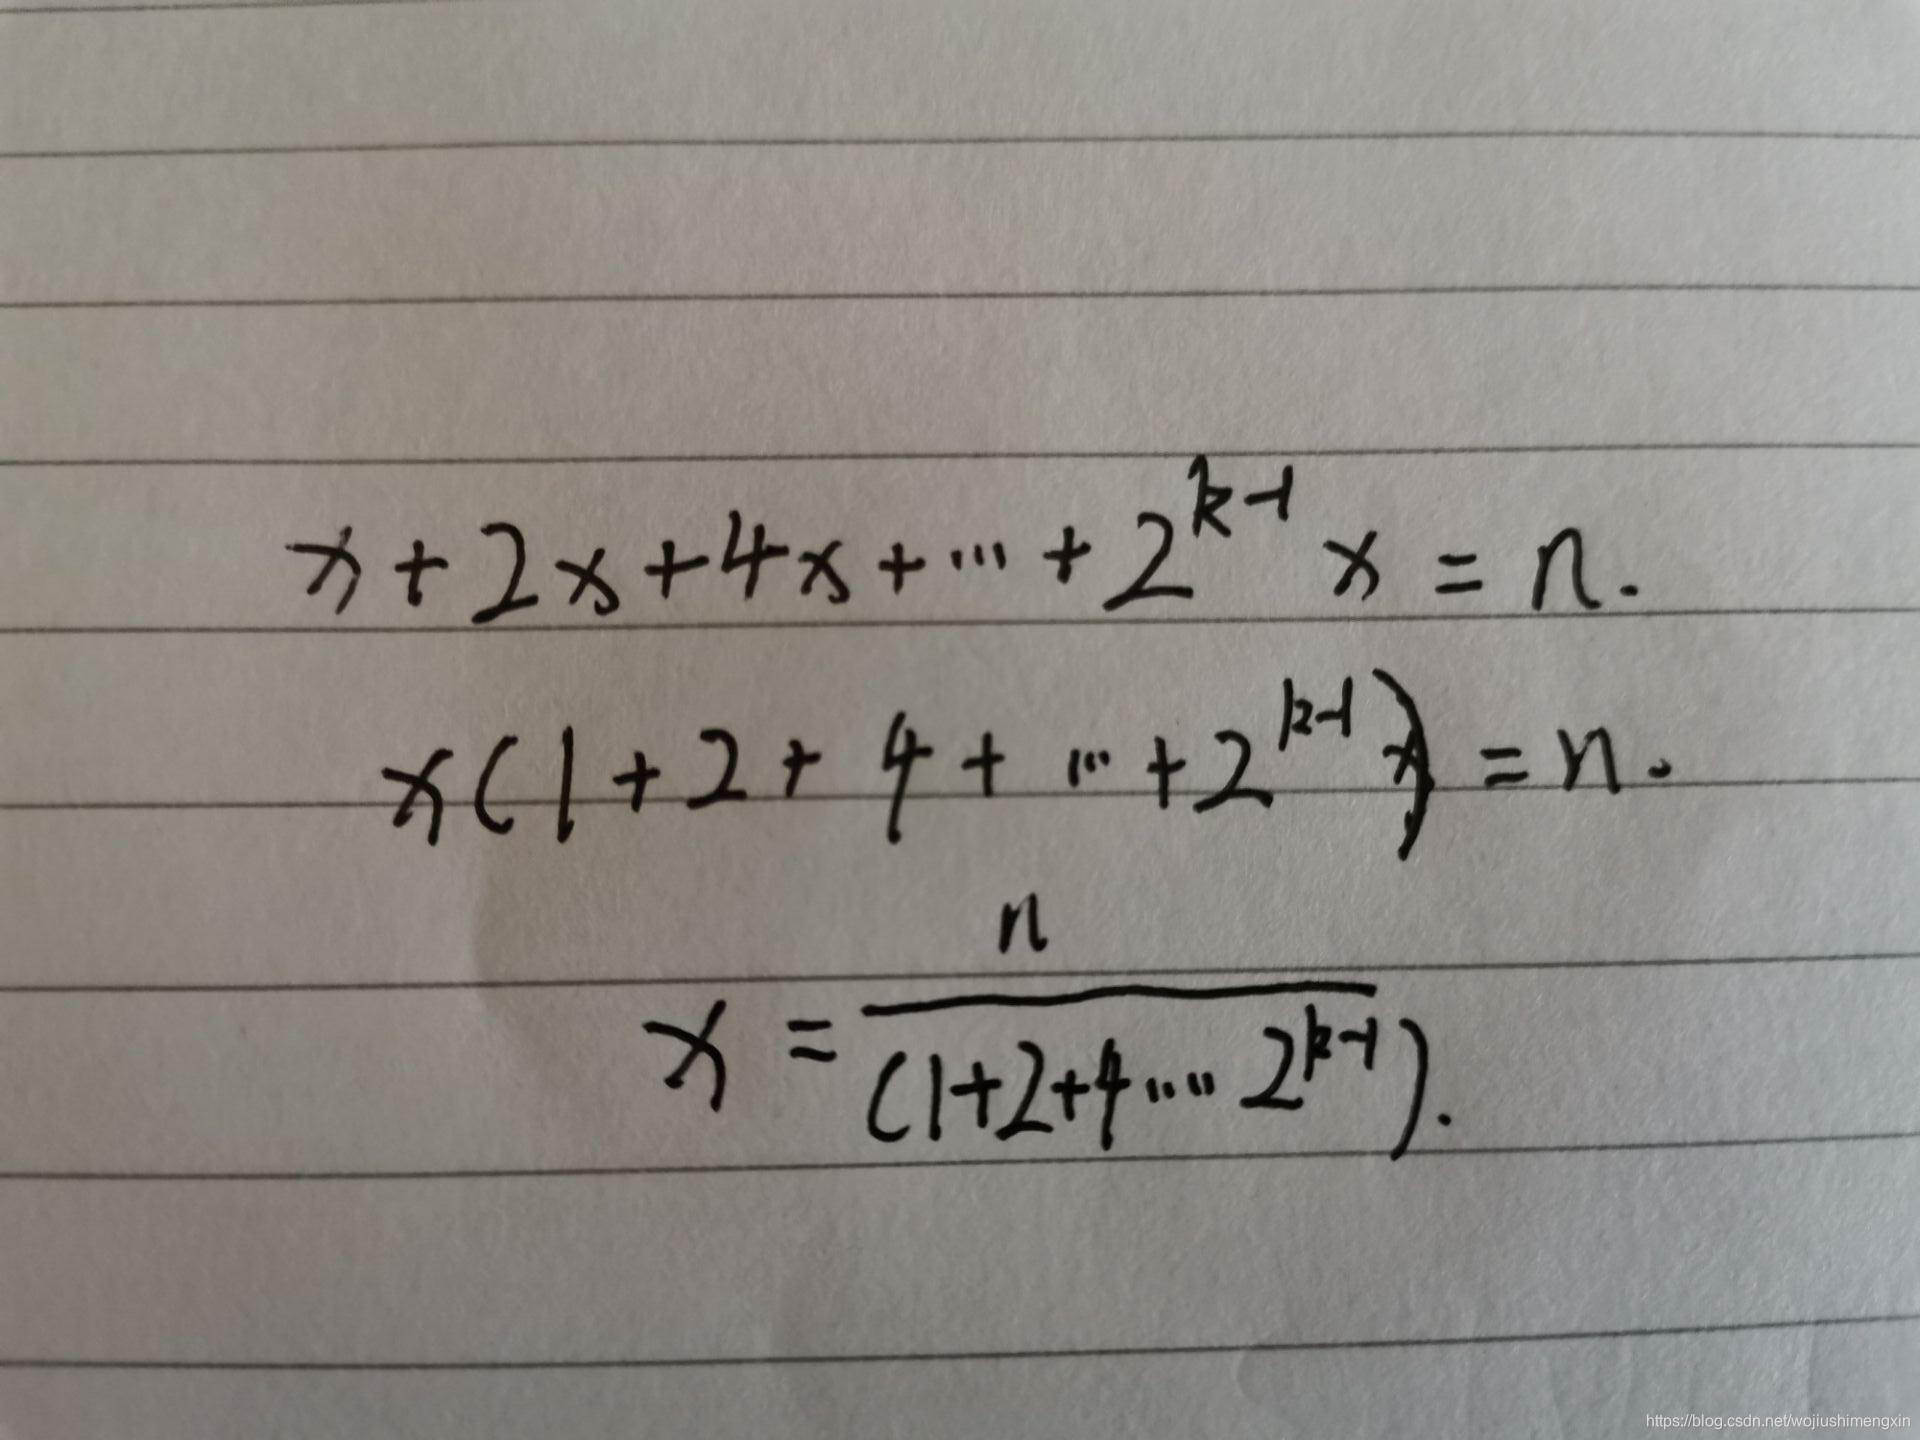 x+2x+4x+...+2^{k-1}x=n.
x(1+2+4+...+2^{k-1})=n.
x=\frac{n}{(1+2+4.....2^{k-1})}.
https://blog.csdn.net/wojiushimengxin